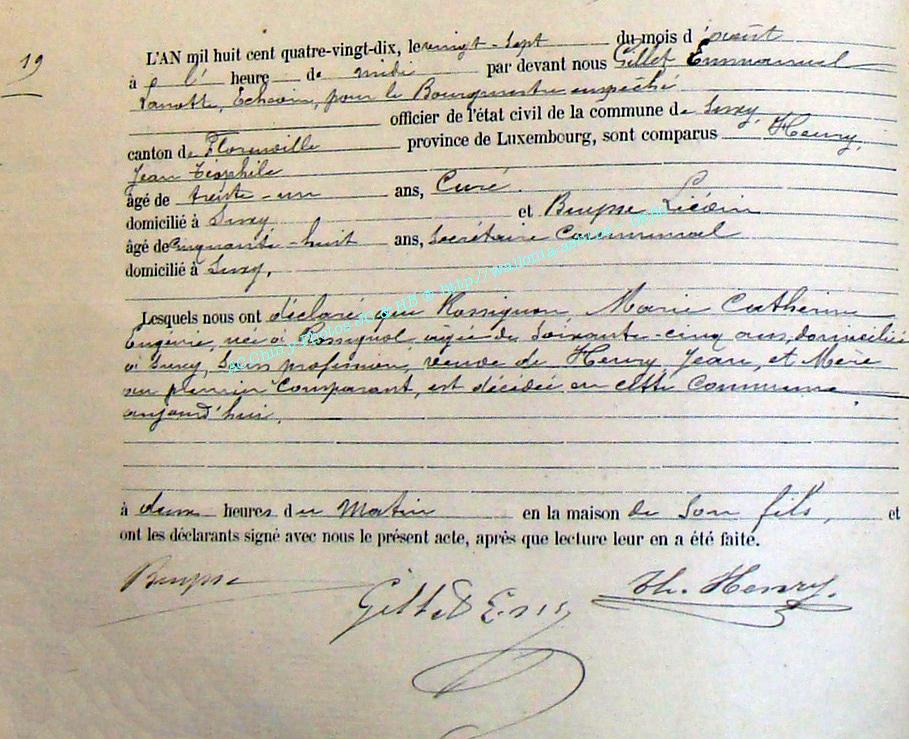 19
L'AN mil huit cent quatre-vingt-dix, le vingt-sept du mois d'août
à l' heure de midi par devant nous Gillet Emmanuel
Echevin, pour le Bourgmestre empêché
officier de l'état civil de la commune de Suxy,
canton de Florenville province de Luxembourg, sont comparus Henry,
Jean Théophile
âgé de trente-un ans, Curé.
domicilié à Suxy et
âgé de cinquante-huit ans, Secrétaire Communal
domicilié à Suxy.
Lesquels nous ont déclaré que Rossignon, Marie Catherine
Eugénie, née à Rossignol, âgée de soixante-cinq ans, domiciliée
à Suxy, sans profession, veuve de Henry Jean, et Mère
au premier Comparant, est décédée en cette Commune
aujourd'hui,
à deux heures du Matin en la maison de son fils, et
ont les déclarants signé avec nous le présent acte, après que lecture leur en a été faite.
Gillet Th. Henry.